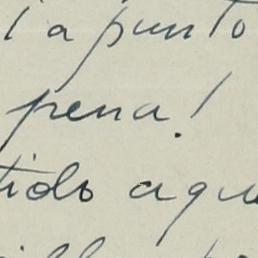 a punto
pena!
tido aqu